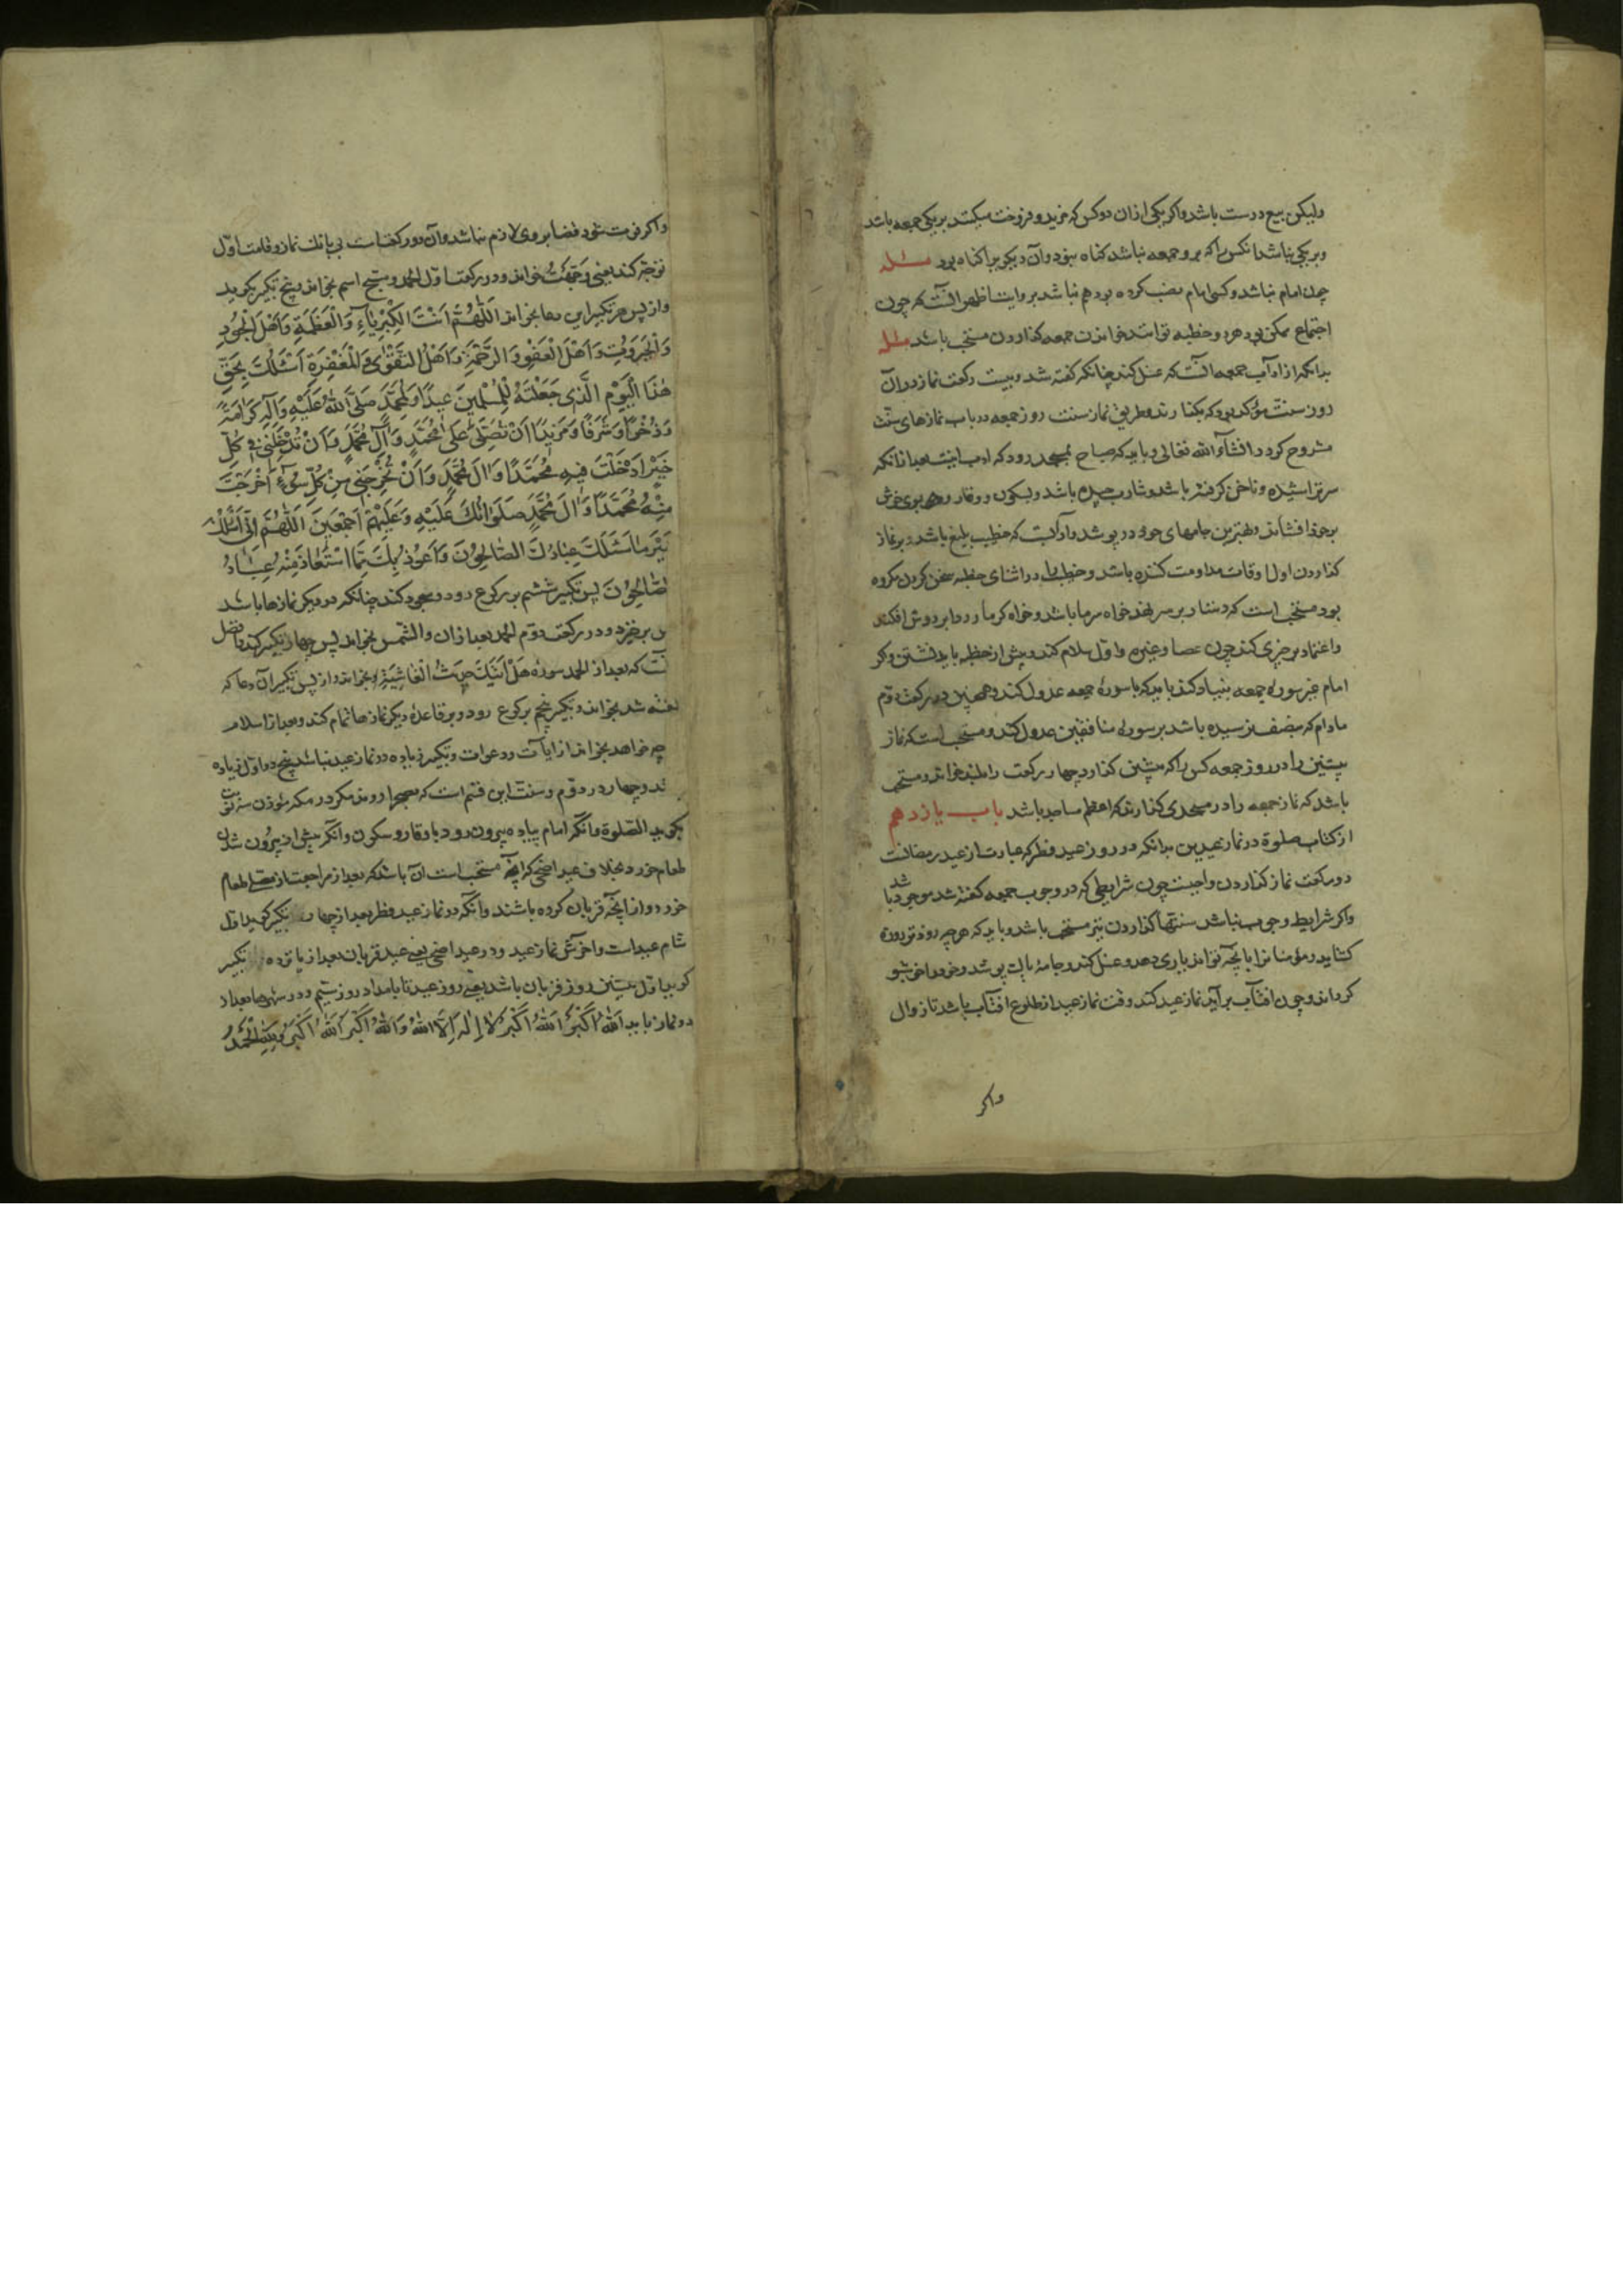 ولیکن بیع درست باشد واکر یکی ازان دو کس که خرید و فروخت میکنند بر یکی جمعه باشد
و بر یکی نباشد انکس را که برو جمعه نباشد کناه نبود وآن دیکر برا کناه بود مسئله
چون امام نباشد و کسی امام نصب کرده بود هم نباشد بروایت اظهر آنست که چون
اجتماع ممکن بود هر دو خطبه توانند خواندن جمعه کذاردن مستحب باشد مسئله
بدانکه از آداب جمعه آنست که غسل کند چنانکه کفته شد و بیست رکعت نماز در آن
روز سنت مؤکد بود که بکذارند و طریق نماز سنت روز جمعه در باب نمازهای سنت
مشروح کردد انشآء الله تعالی و باید که صباح بمسجد رود که ادب اینست بعد ازانکه
سر تراشیده و ناخن کرفته باشد و شارب چیده باشد و بسکون و وقار رود و بوی خوش
برخود افشاند و بهترین جامهای خود در پوشد و ادب آنست که خطیب بلیغ باشد و بر نماز
کذاردن اول اوقات مداومت کننده باشد و خطیب را در اثنای خطبه سخن کردن مکروه
بود مستحب است که دستار بر سر نهد خواه سرما باشد و خواه کرما و ردا بر دوش افکند
و اعتماد بر چیزی کند چون عصا و غیره و اوّل سلام کند و پیش از خطبه باید نشستن و کر
امام غیر سورهٔ جمعه بنیاد کند باید که با سورهٔ جمعه عدول کند و همچنین در رکعت دوّم
مادام که بنصف نرسیده باشد بر سورهٔ منافقین عدول کند و مستحب است که نماز
پیشین را در روز جمعه کس را که پیشین کذارد چهار رکعت را بلند خواند و مستحب
باشد که نماز جمعه را در مسجدی کذارند که اعظم مساجد باشد باب یازدهم
از کتاب صلوة در نماز عیدین بدانکه در روز عید فطر که عبارت از عید رمضانست
دو رکعت نماز کذاردن واجبست چون شرایطی که در وجوب جمعه کفته شد موجود باشد
واکر شرایط وجوب نباشد سنتها کذاردن نیز مستحب باشد و باید که هر چه زودتر روزه
کشاید و مؤمنانرا بانچه تواند یاری دهد و غسل کند و جامهٔ پاک پوشد و خود را خوشبو
کرداند و چون افتآب برآید نماز عید کند وقت نماز عید از طلوع افتآب باشد تا زوال
واکر
واکر فوت شود قضا بر وی لازم نباشد وآن دو رکعتست بی بانك نماز و قامت اوّل
توجّه کند یعنی وَجَّهْتُ خواند و در رکعت اوّل الحمد و سبح اسم بخواند و پنج تکبیر بکوید
واز پس هر تکبیر این دعا بخواند اَللّٰهُمَّ اَنْتَ الْكِبْرِيٰآءِ وَالْعَظَمَةِ وَاَهْلَ الْجُودِ
وَالْجَبَرُوتِ وَاَهْلَ الْعَفْوِ وَالرَّحْمَةِ وَاَهْلَ التَّقْوٰى وَالْمَغْفِرَةِ اَسْئَلُكَ بِحَقِّ
هٰذَا الْيَوْمِ الَّذى جَعَلْتَهُ لِلْمُسْلِمينَ عيدًا وَلِمُحَمَّدٍ صَلَّى اللّٰهُ عَلَيْهِ وَآلِهِ كَرَامَةً
وَذُخْرًا وَشَرَفًا وَمَزيدًا اَنْ تُصَلِّىَ عَلىٰ مُحَمَّدٍ وَآلِ مُحَمَّدٍ وَاَنْ تُدْخِلَنى فى كُلِّ
خَيْرٍ اَدْخَلْتَ فيهِ مُحَمَّدًا وَآلَ مُحَمَّدٍ وَاَنْ تُخْرِجَنى مِنْ كُلِّ سُوٓءٍ اَخْرَجْتَ
مِنْهُ مُحَمَّدًا وَآلَ مُحَمَّدٍ صَلَوٰاتُكَ عَلَيْهِ وَعَلَيْهِمْ اَجْمَعينَ اَللّٰهُمَّ اِنّى اَسْئَلُكَ
خَيْرَ مٰا سَئَلَكَ عِبٰادُكَ الصّٰالِحُونَ وَاَعُوذُ بِكَ مِمَّا اسْتَعٰاذَ مِنْهُ عِبٰادُكَ
الصّٰالِحُونَ پس تکبیر ششم بر رکوع رود و سجود کند چنانکه در دیکر نمازها باشد
پس برخیزد و در رکعت دوّم الحمد بعد ازان والشّمس بخواند پس چهار تکبیر کند و افضل
آنست که بعد از الحمد سورهٔ هَلْ اَتٰیكَ حَدیثُ الْغٰاشِيَةِ بخواند واز پس تکبیر آن دعا که
کفته شد بخواند و تکبیر پنجم برکوع رود و بر قاعدهٔ دیکر نمازها تمام کند و بعد از سلام
چه خواهد بخواند از ایات و دعوات و تکبیر زیاده در نماز عید نباشد پنج در اوّل زیاده
کند و چهار در دوّم و سنت این قسم است که بصحرا روند مکر در مکه مؤذن سه نوبت
بکوید الصّلوة وانکه امام پیاده بیرون رود با وقار و سکون وانکه پیش از بیرون شدن
طعام خورد بخلاف عید اضحی که انچه مستحب است آن باشد که بعد از مراجعت از مصلی طعام
خورد و از انچه قربان کرده باشند وانکه در نماز عید فطر بعد از چهار تکبیر کوید اول
شام عید است و آخرش نماز عید و در عید اضحی یعنی عید قربان بعد از پانزده تکبیر
کوید اوّل پیشین روز قربان باشد یعنی روز عید تا بامداد روز سیّم و در شهرها بعد از
ده نماز باید اَللّٰهُ اَكْبَرُ اَللّٰهُ اَكْبَرُ لٰا اِلٰهَ اِلَّا اللّٰهُ وَاللّٰهُ اَكْبَرُ اَللّٰهُ اَكْبَرُ وَلِلّٰهِ الْحَمْدُ